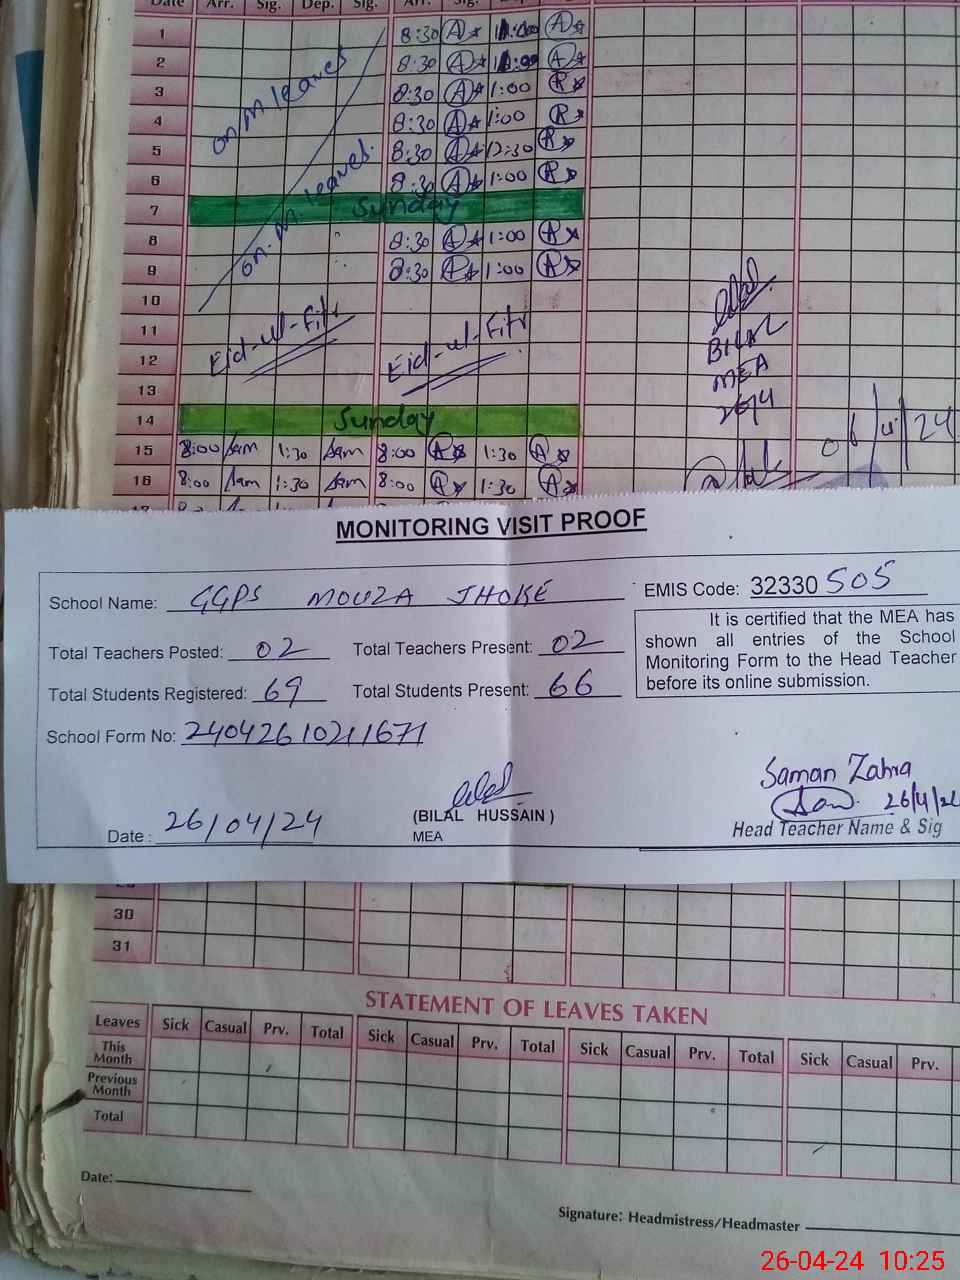 Date Arr. Sig. Dep. Sig. Arr. Sig.
1 8:30 A
2 8:30 A
3 8:30 A 1:00 R
4 8:30 A 1:00 R
5 8:30 A 12:30 R
6 8:30 A 1:00 R
on M leaves
on M. leaves.
7 Sunday
8 8:30 A 1:00 A
9 8:30 A 1:00 A
10
11
12
13
Eid-ul-Fitr Eid-ul-Fitr
BILAL
MEA
26/4
14 Sunday
15 8:00 Sam 1:30 Sam 8:00 A 1:30 A
16 8:00 Sam 1:30 Sam 8:00 A 1:30 A
MONITORING VISIT PROOF
School Name: GGPS MOUZA JHOKE EMIS Code: 32330505
Total Teachers Posted: 02 Total Teachers Present: 02
Total Students Registered: 69 Total Students Present: 66
School Form No: 24042610211671
It is certified that the MEA has
shown all entries of the School
Monitoring Form to the Head Teacher
before its online submission.
Date: 26/04/24
(BILAL HUSSAIN)
MEA
Saman Zahra
26/4/24
Head Teacher Name & Sig
30
31
STATEMENT OF LEAVES TAKEN
Leaves Sick Casual Prv. Total Sick Casual Prv. Total Sick Casual Prv. Total Sick Casual Prv.
This
Month
Previous
Month
Total
Date:
Signature: Headmistress/Headmaster
26-04-24 10:25